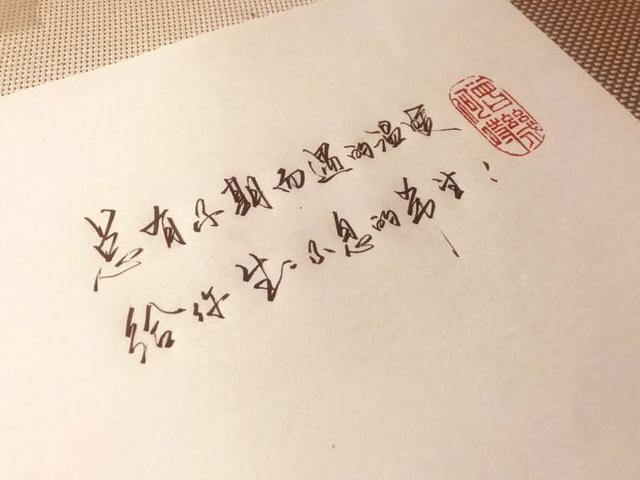 总有不期而遇的温暖
给你生生不息的希望